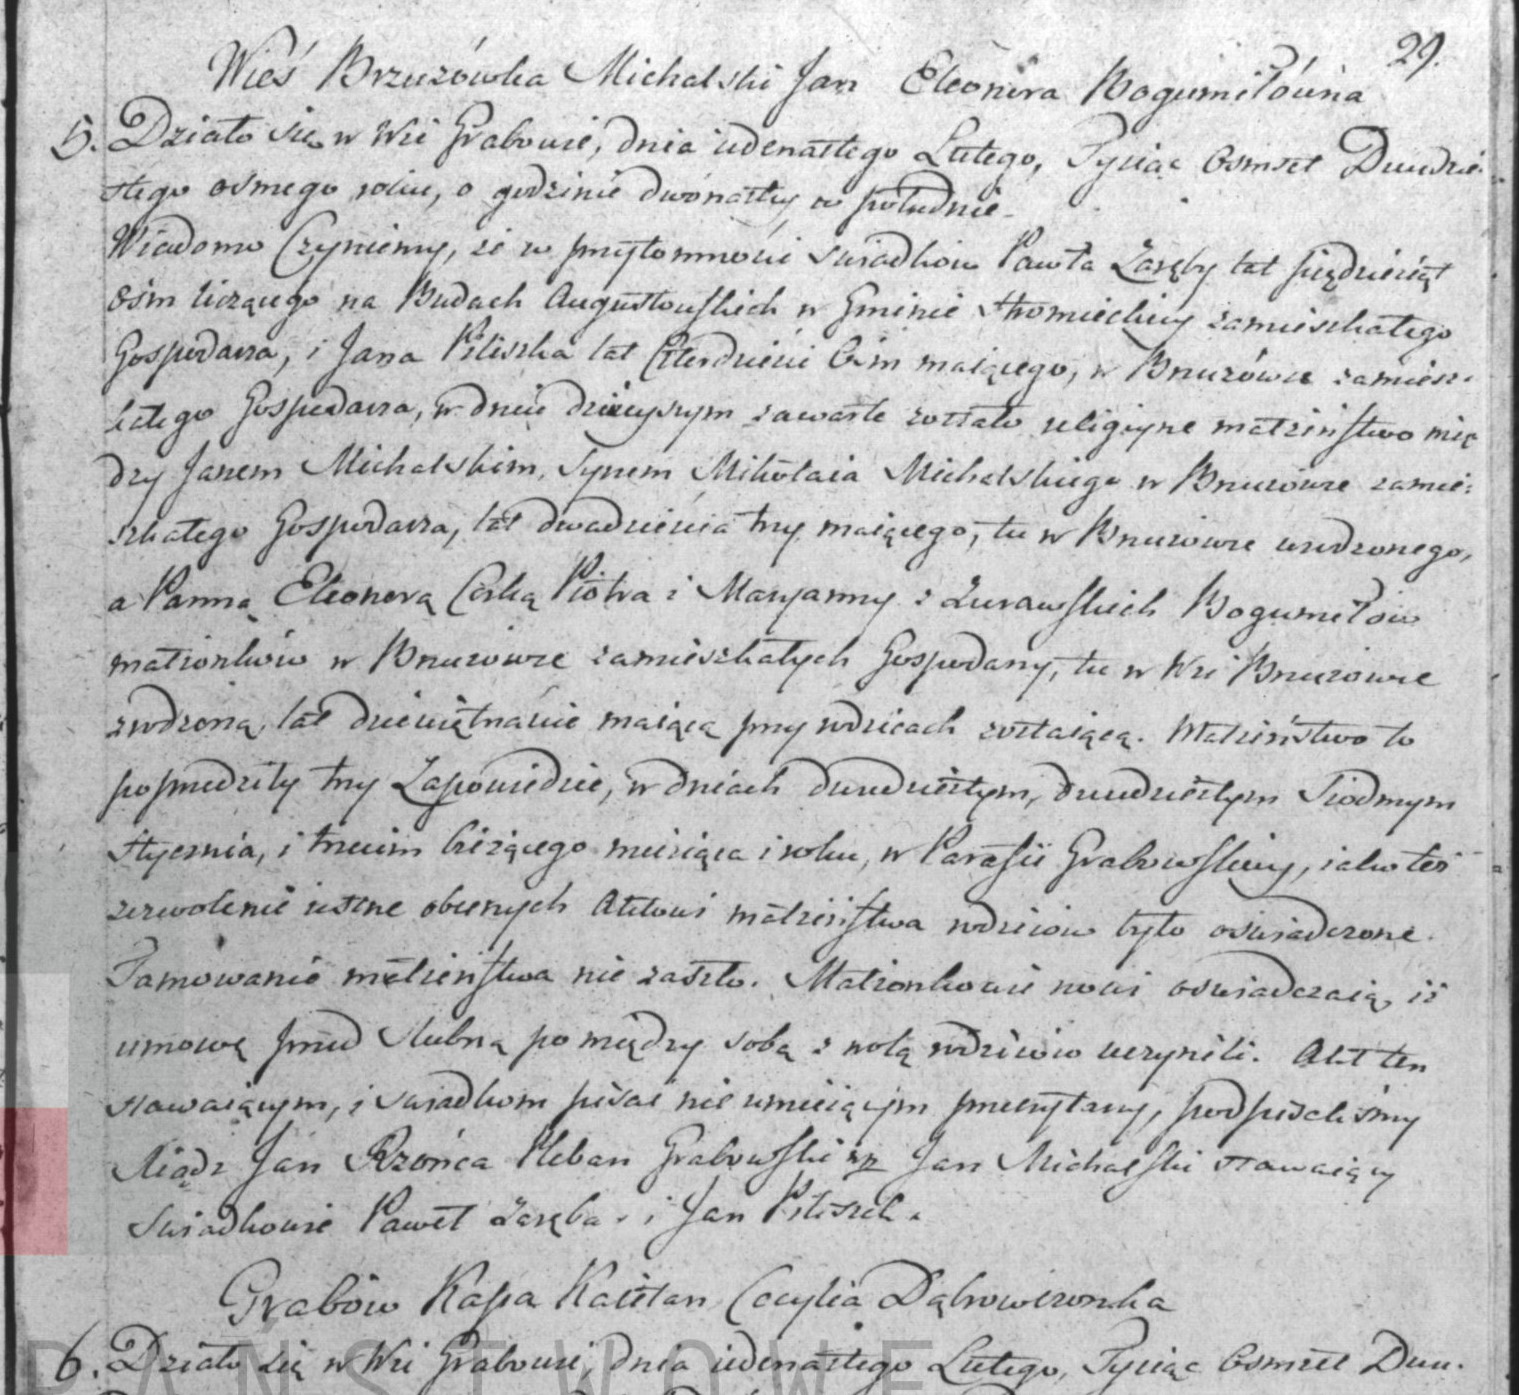 29.
Wieś Brzuzówka Michalski Jan Eleonora Bogumiłówna
5. Działo się w Wsi Grabowie, dnia iedenastego Lutego, Tysiąc Osmset Dwudzie-
stego osmego roku, o godzinie dwónastej w południe.
Wiadomo Czyniemy, że w przytomności swiadków Pawła Zaręby lat pięćdziesiąt
ośm liczącego na Budach Augustowskich w Gminie Stromieckiey zamieszkałego
Gospodarza, i Jana Piliszka lat Czterdzieści Ośm maiącego, w Brzuzówce zamiesz-
kałego Gospodarza, w dniu dzisieyszym zawarte zostało religiyne małżeństwo mię
dzy Janem Michalskim, Synem Mikołaia Michalskiego w Brzuzówce zamie-
szkałego Gospodarza, lat dwadzieścia trzy maiącego, tu w Brzuzowce urodzonego,
a Panną Eleonorą Córką Piotra i Maryanny z Żurawskich Bogumiłów
małżonków w Brzuzowce zamieszkałych Gospodarzy, tu w Wsi Brzuzówce
zrodzoną, lat dziewiętnaście maiącą przy rodzicach zostaiącą. Małżeństwo to
poprzedziły trzy Zapowiedzie, w dniach dwudziestym, dwudziestym Siodmym
Stycznia, i trzecim bieżącego miesiąca i roku, w Parafii Grabowskiey, iako też
zezwolenie ustne obecnych Aktowi małżeństwa rodziców było oświadczone.
Tamowanie małżeństwa nie zaszło. Małżonkowie nowi oświadczaią, iż
umowę przed slubną pomiędzy sobą z wolą rodziców uczynili. Akt ten
stawaiącym, i swiadkom pisać nie umieiącym przeczytany, podpisaliśmy
Xiądz Jan Rzońca Pleban Grabowski Jan Michalski stawaiący
Swiadkowie Paweł Zaręba. i Jan Piliszek.
Grabów Kapa Kaietan Cecylia Dąbrowszonka
6. Działo się w Wsi Grabowie, dnia iedenastego Lutego, Tysiąc Osmset Dwu-
PAŃSTWOWE